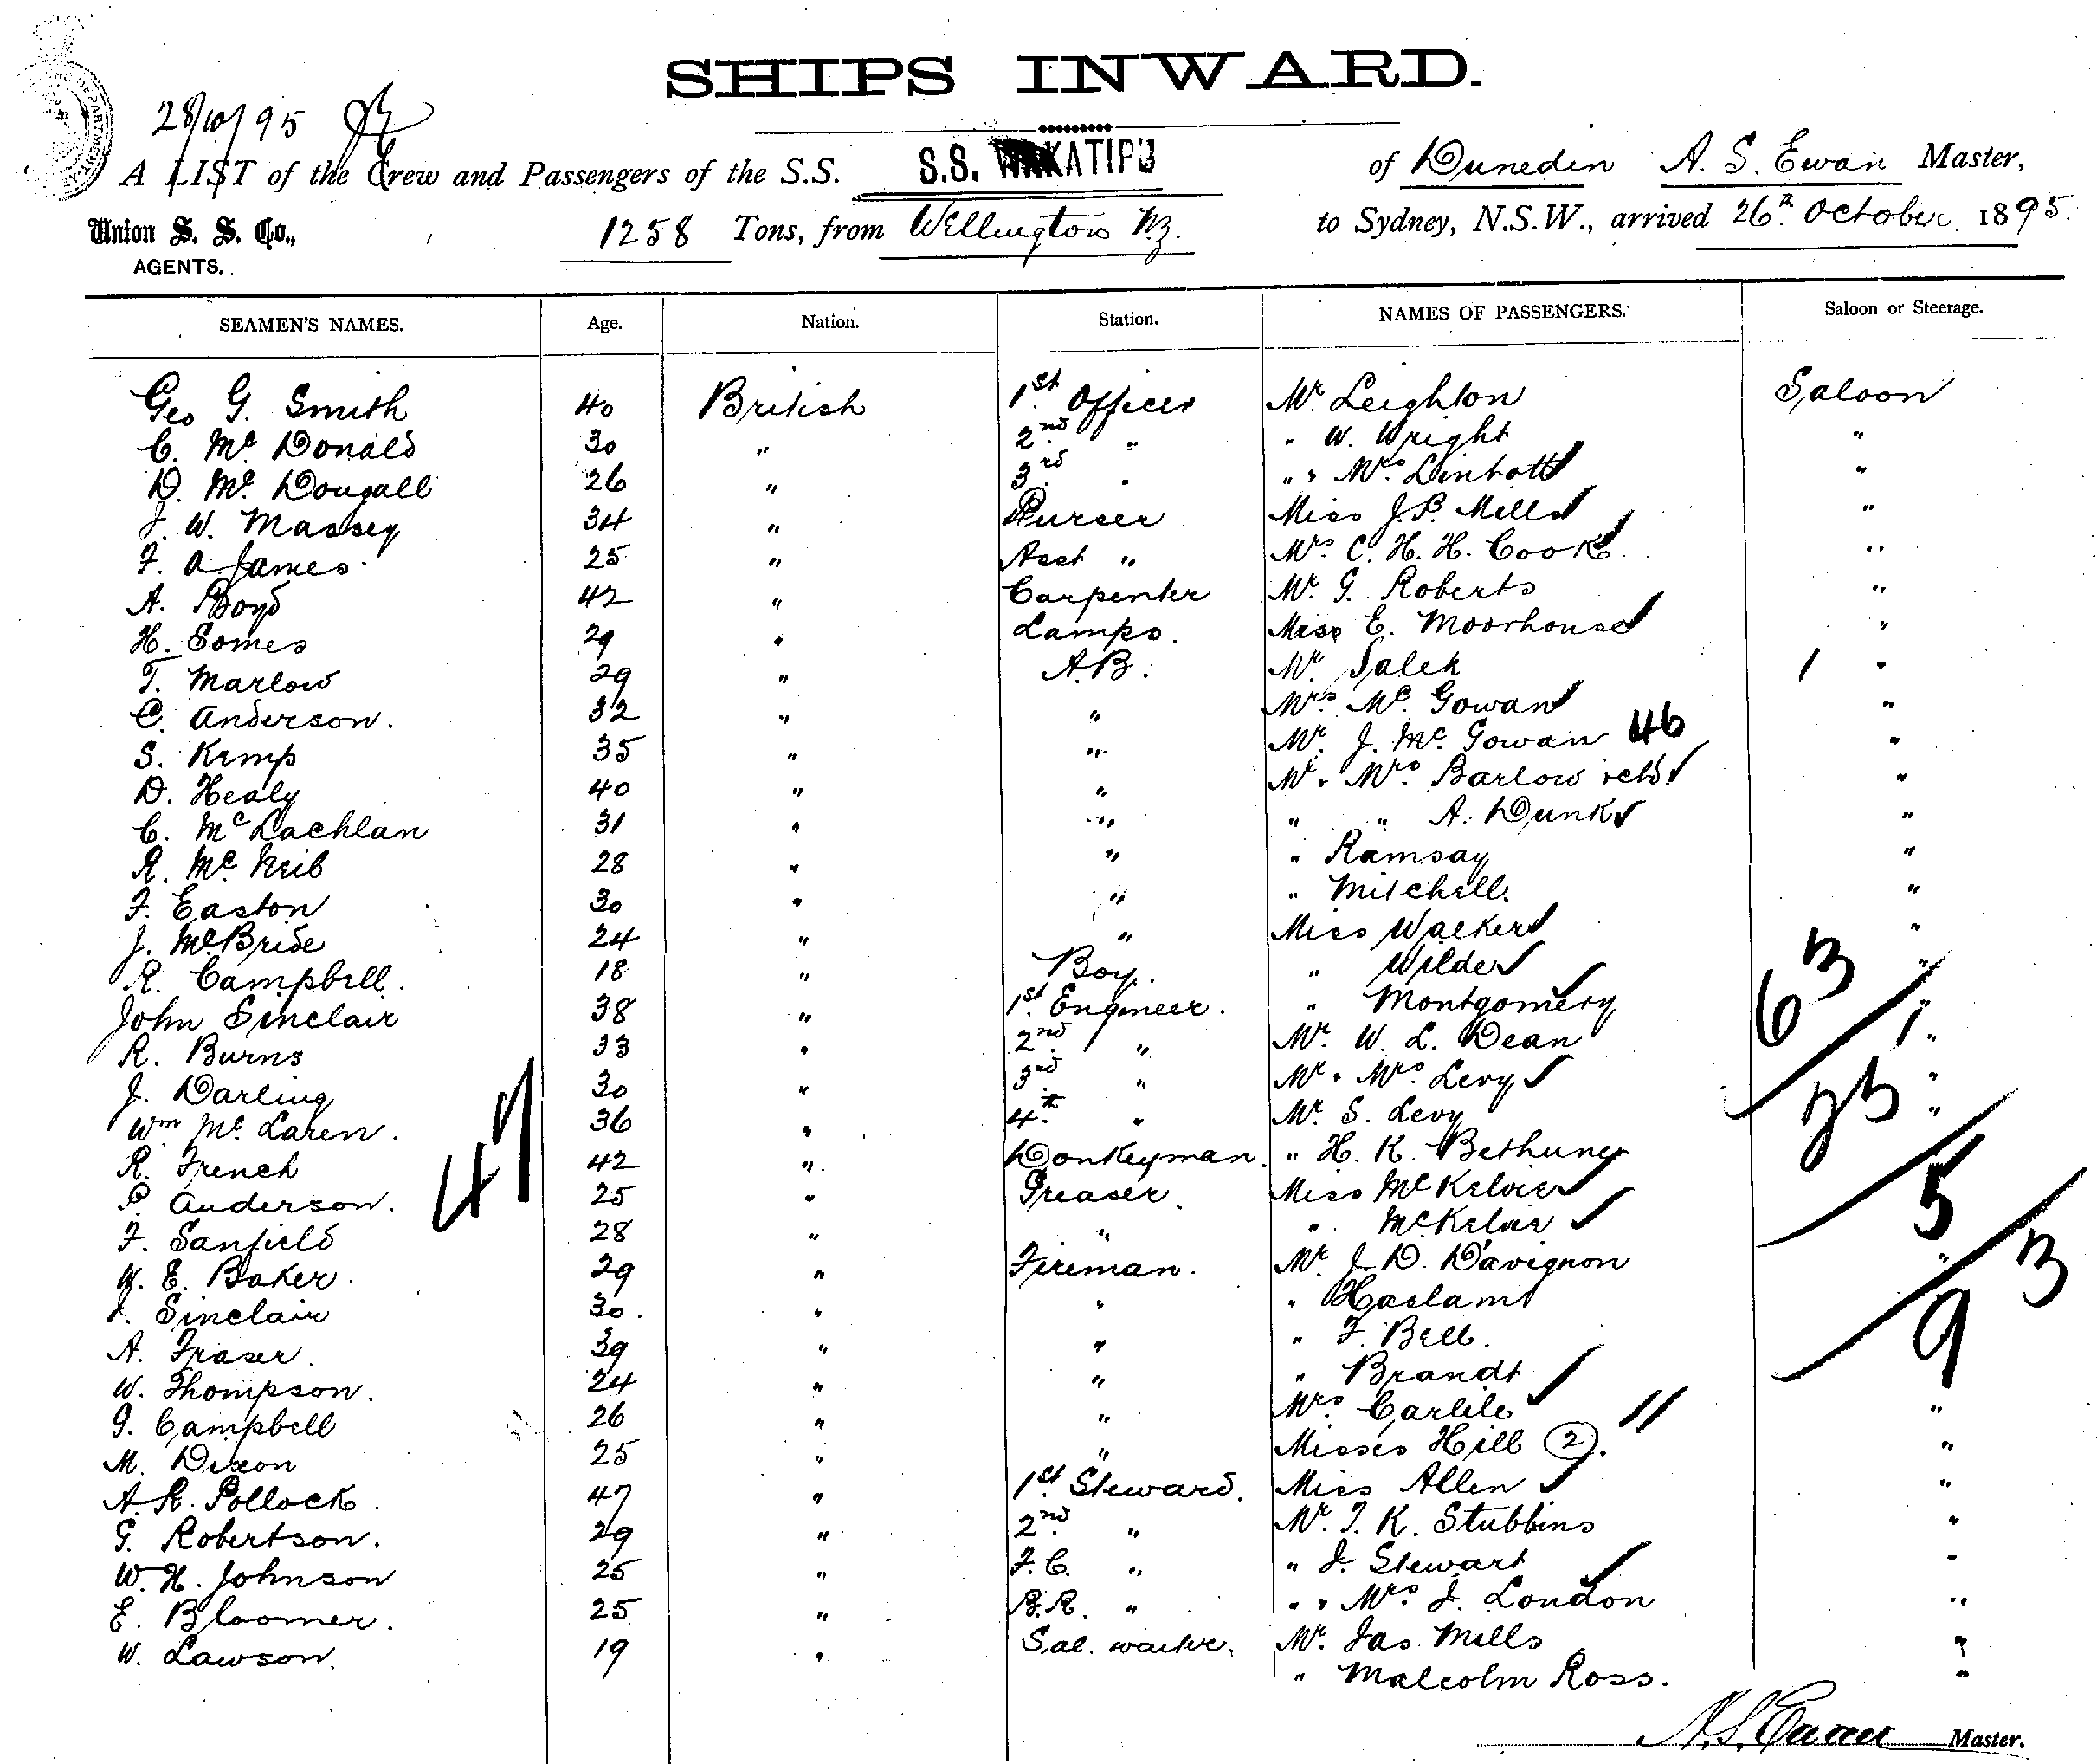 SHIPS INWARD.
28/10/95
A LIST of the Crew and Passengers of the S.S. S.S. WAKATIPU of Dunedin A. S. Ewan Master,
Union S. S. Co., 1258 Tons, from Wellington N.Z. to Sydney, N.S.W., arrived 26th October 1895.
AGENTS.
SEAMEN'S NAMES. Age. Nation. Station. NAMES OF PASSENGERS. Saloon or Steerage.
Geo G. Smith 40 British 1st Officer Mr. Leighton Saloon
C. Mc Donald 30 " 2nd " " W. Wright "
D. Mc Dougall 26 " 3rd " " & Mrs. Lintott "
J. W. Massey 34 " Purser Miss J. P. Mills "
F. A James 25 " Asst " Mrs C. H. H. Cook "
A. Boyd 42 " Carpenter Mr. G. Roberts "
H. Somes 29 " Lamps. Miss E. Moorhouse "
T. Marlow 29 " A.B. Mr Salek 1 "
C. Anderson. 32 " " Mrs. Mc. Gowan "
S. Kemp 35 " " Mr. J. Mc. Gowan 46 "
D. Healy 40 " " Mr & Mrs. Barlow "
C. McLachlan 31 " " " " A. Dunk "
R. Mc. Neib 28 " " " Ramsay "
F. Easton 30 " " " Mitchell. "
J. McBride 24 " " Miss Walker "
R. Campbell. 18 " Boy. " Wilder "
John Sinclair 38 " 1st Engineer. " Montgomery 63 "
R. Burns 33 " 2nd " Mr. W. L. Dean 1 "
J. Darling 30 " 3rd " Mr. & Mrs. Levy "
Wm Mc. Laren. 36 " 4th " Mr. S. Levy "
R. French 42 " Donkeyman. " H. K. Bethune
47 Anderson. 25 " Greaser. Miss McKelvie 5
F. Sanfield 28 " " " McKelvie
W. E. Baker. 29 " Fireman. Mr. J. D. Davignon " 3
Sinclair 30. " " " Haslam 9
A. Fraser. 39 " " " F. Bell.
W. Thompson. 24 " " " Brandt
G. Campbell 26 " " Mrs. Carlile 11 "
M. Dixon 25 " " Misses Hill (2). "
A. R. Pollock. 47 " 1st Steward. Miss Allen "
G. Robertson. 29 " 2nd " Mr. T. K. Stubbins "
W. H. Johnson 25 " F.C. " " J. Stewart "
E. Bloomer. 25 " B.R. " " & Mrs. J. London "
W. Lawson. 19 " Sal. waiter. Mr. Jas Mills "
" Malcolm Ross. "
A. S. Ewan Master.